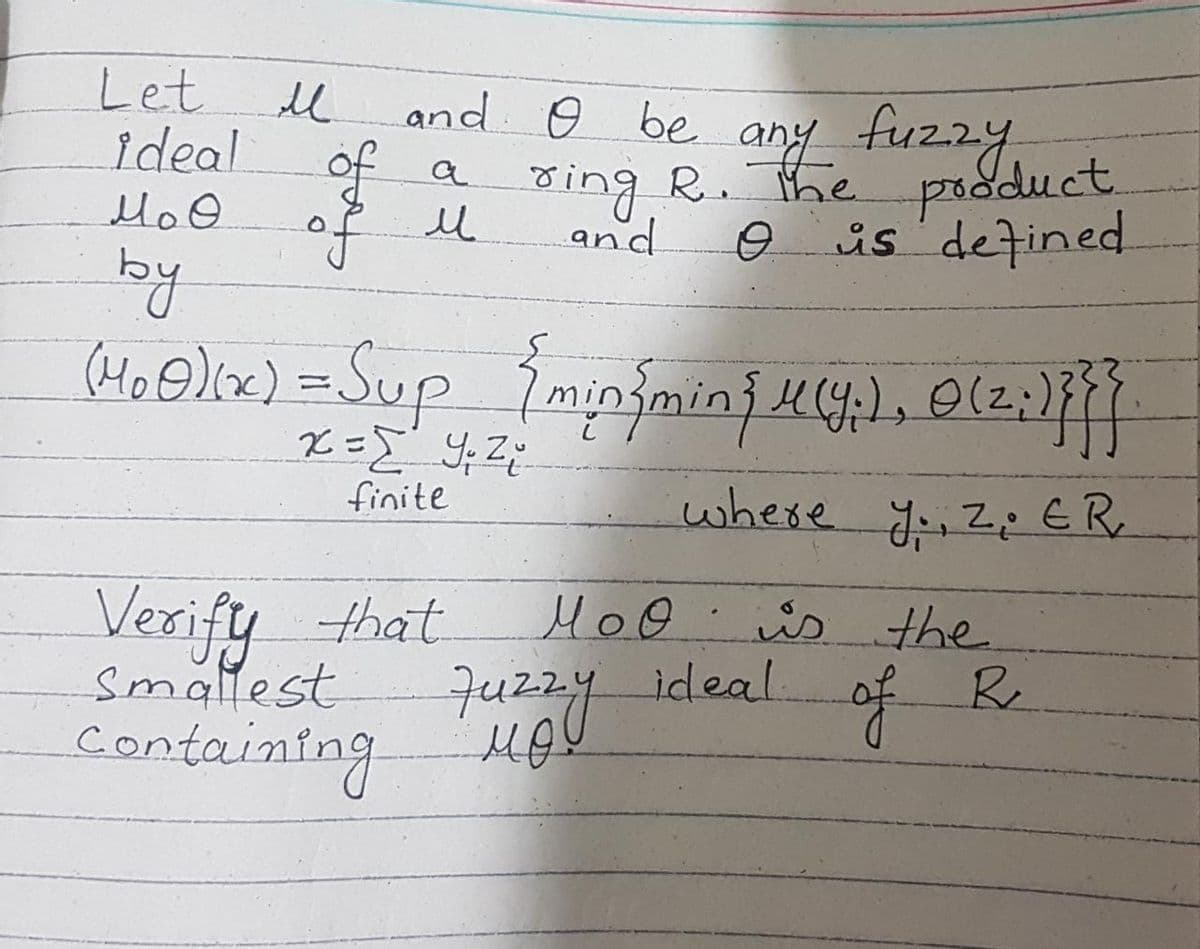 Let μ and θ be any fuzzy
ideal of a ring R. The product
μoθ of μ and θ is defined
by
(μoθ)(x) = Sup {min{min{μ(yᵢ), θ(zᵢ)}}}
x = Σ yᵢ zᵢ i
finite
where yᵢ, zᵢ ∈ R
Verify that μoθ is the
smallest fuzzy ideal of R
containing μθ.